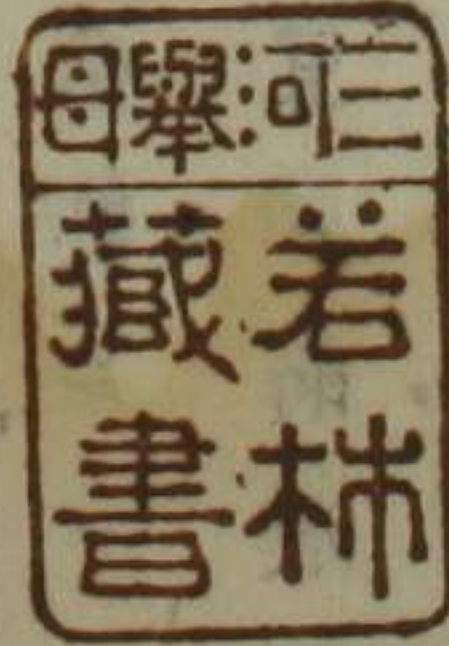 三河擧母
若林
藏書